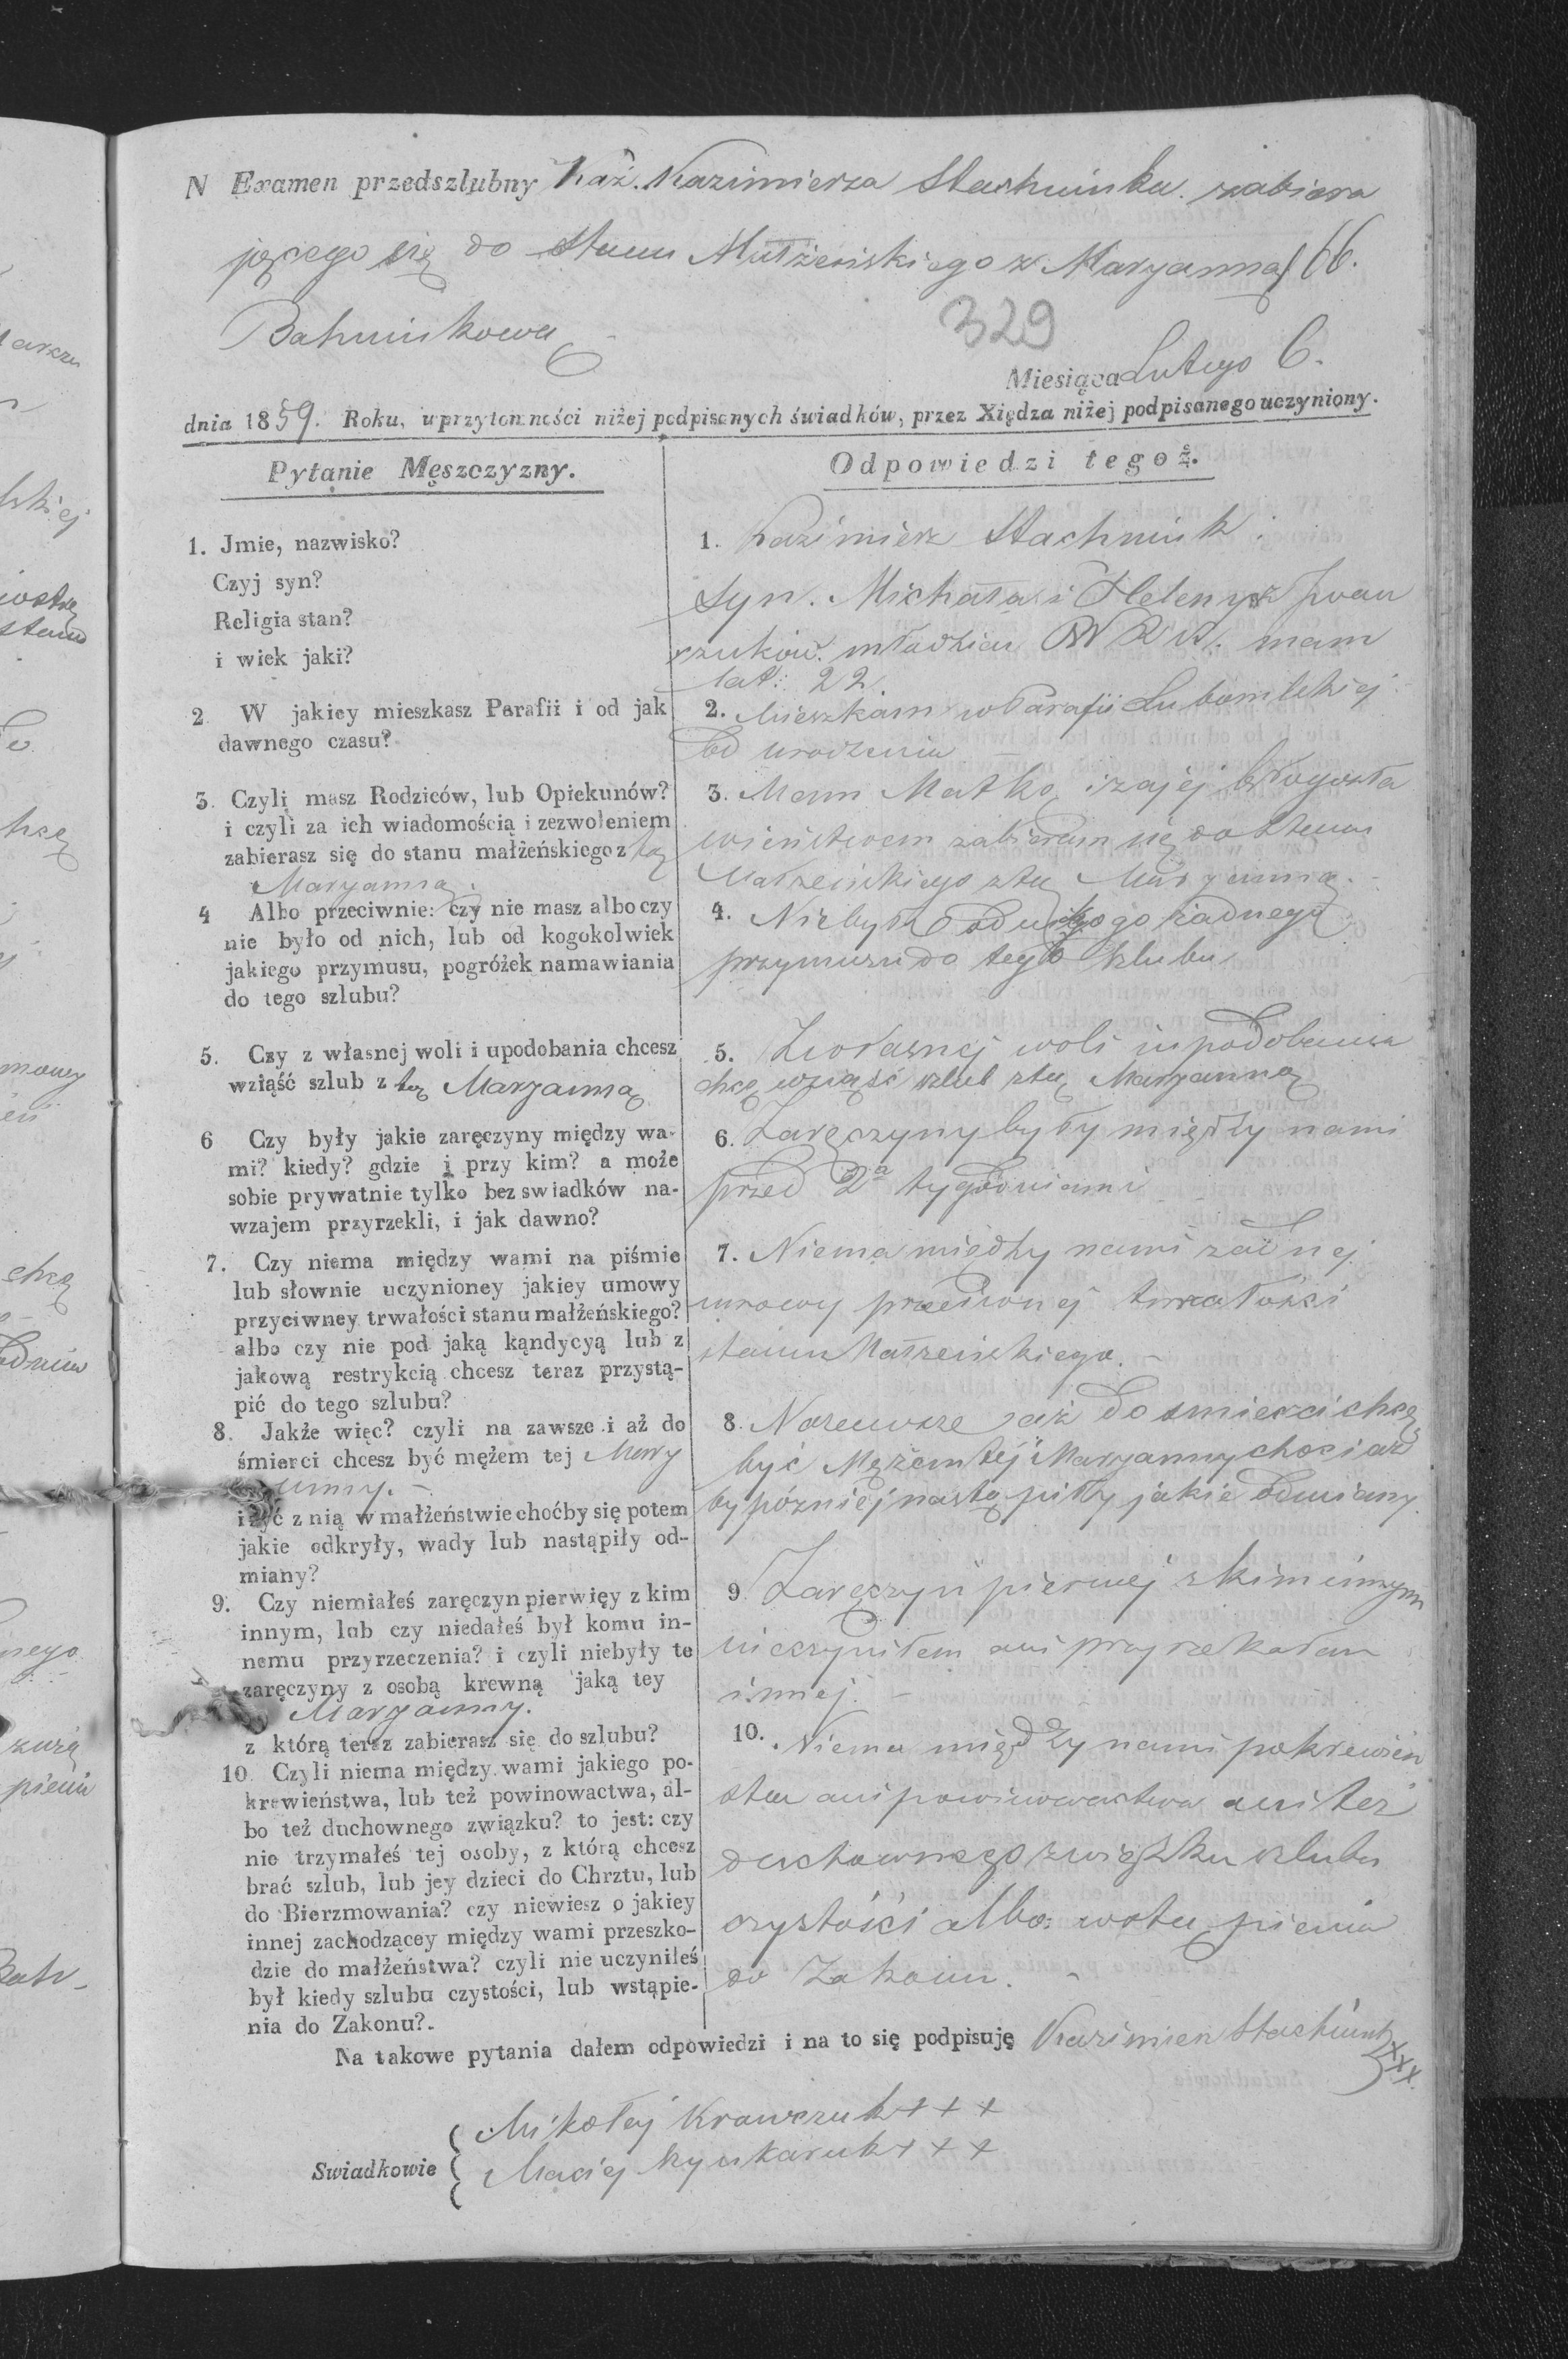 N Examen przedszlubny Kaź. Kazimierza Stachniuka. zabiera
jącego się do Stanu Małżeńskiego z Maryanną 66.
Bahniukową
329
Miesiąca Lutego 6.
dnia 1859. Roku, w przytomności niżej podpisanych świadków, przez Xiędza niżej podpisanego uczyniony.
Pytanie Męszczyzny.
1. Jmie, nazwisko?
Czyj syn?
Religia stan?
i wiek jaki?
2 W jakiey mieszkasz Parafii i od jak
dawnego czasu?
3. Czyli masz Rodziców, lub Opiekunów?
i czyli za ich wiadomością i zezwoleniem
zabierasz się do stanu małżeńskiego z tą
Maryanną.
4 Albo przeciwnie: czy nie masz albo czy
nie było od nich, lub od kogokolwiek
jakiego przymusu, pogróżek namawiania
do tego szlubu?
5. Czy z własnej woli i upodobania chcesz
wziąść szlub z tą Maryanną
6 Czy były jakie zaręczyny między wa-
mi? kiedy? gdzie i przy kim? a może
sobie prywatnie tylko bez swiadków na-
wzajem przyrzekli, i jak dawno?
7. Czy niema między wami na piśmie
lub słownie uczynioney jakiey umowy
przyciwney trwałości stanu małżeńskiego?
albo czy nie pod jaką kąndycyą lub z
jakową restrykcią chcesz teraz przystą-
pić do tego szlubu?
8. Jakże więc? czyli na zawsze i aż do
śmierci chcesz być mężem tej Mary
anny. -
i żyć z nią w małżeństwie choćby się potem
jakie odkryły, wady lub nastąpiły od-
miany?
9. Czy niemiałeś zaręczyn pierwięy z kim
innym, lub czy niedałeś był komu in-
nemu przyrzeczenia? i czyli niebyły te
zaręczyny z osobą krewną jaką tey
Maryanny.
z którą teraz zabierasz się do szlubu?
10. Czyli niema między wami jakiego po-
krewieństwa, lub też powinowactwa, al-
bo też duchownego związku? to jest: czy
nie trzymałeś tej osoby, z którą chcesz
brać szlub, lub jey dzieci do Chrztu, lub
do Bierzmowania? czy niewiesz o jakiey
innej zachodzącey między wami przeszko-
dzie do małżeństwa? czyli nie uczyniłeś
był kiedy szlubu czystości, lub wstąpie-
nia do Zakonu?.
Odpowiedzi tegoż.
1. Kazimierz Stachniuk.
Syn. Michała i Heleny z Iwan
czuków. młodzian mam
lat: 22.
2. Mieszkam w Parafii Lubomlskiej
od urodzenia
3. Mam Matkę i za jej błogosła
wieństwem zabieram się do Stanu
Małżeńskiego z tą Maryanną. -
4. Niebyło od nikogo żadnego
przymusu do tego szlubu
5. Z własnej woli i upodobania
chcę wziąść szlub z tą Maryanną
6. Zaręczyny były między nami
przed 2a tygodniami
7. Niema między nami żadnej
umowy przeciwnej trwałości
stanu Małżeńskiego. -
8. Nazawsze i aż do śmierci chcę
być Mężem tej Maryanny chociaż
by pózniej nastąpiły jakie odmiany.
9 Zaręczyn pierwej z kim innym
nieczyniłem ani przyrzekałem
innej. -
10. Niema między nami pokrewień
stwa ani powinowactwa ani też
duchownego związku szlubu
czystości albo wstąpienia
do Zakonu. -
Na takowe pytania dałem odpowiedzi i na to się podpisuję Kazimierz Stachiuk
xxx
Swiadkowie
Mikołaj Krawczuk + + +
Maciej + + +